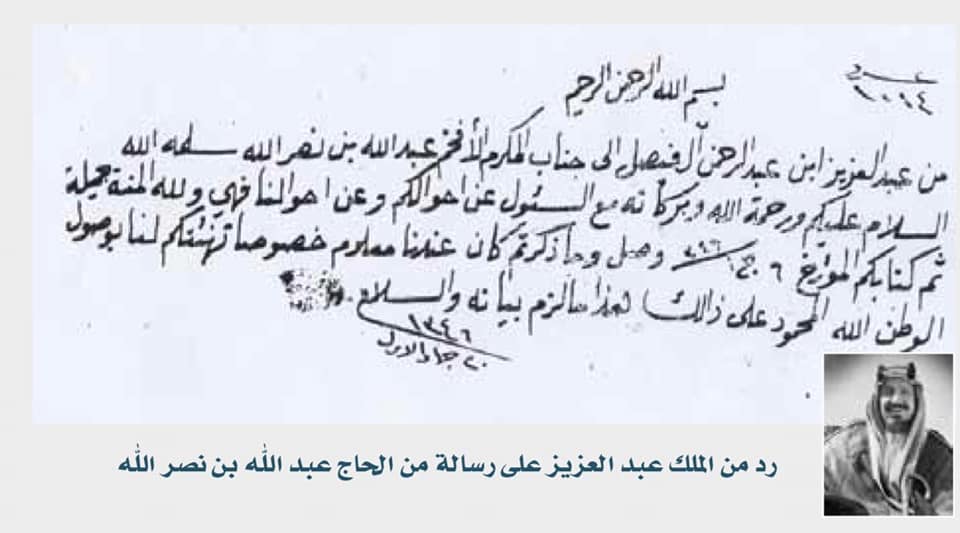 بسم الله الرحمن الرحيم
عدد
٢٠١٤
من عبد العزيز ابن عبد الرحمن آل فيصل الى جناب المكرم الأفخم عبد الله بن نصر الله سلمه الله
السلام عليكم ورحمة الله وبركاته مع السئول عن احوالكم وعن احوالنا فهي ولله المنة جميلة
ثم كتابكم المؤرخ ٦ وصل وما ذكرتم كان عندنا معلوم خصوصا تهنئتكم لنا بوصول
الوطن الله المحمود على ذالك هذا مالزم بيانه والسلام
١٣٤٦
٢٠ جماد الاول
رد من الملك عبد العزيز على رسالة من الحاج عبد الله بن نصر الله